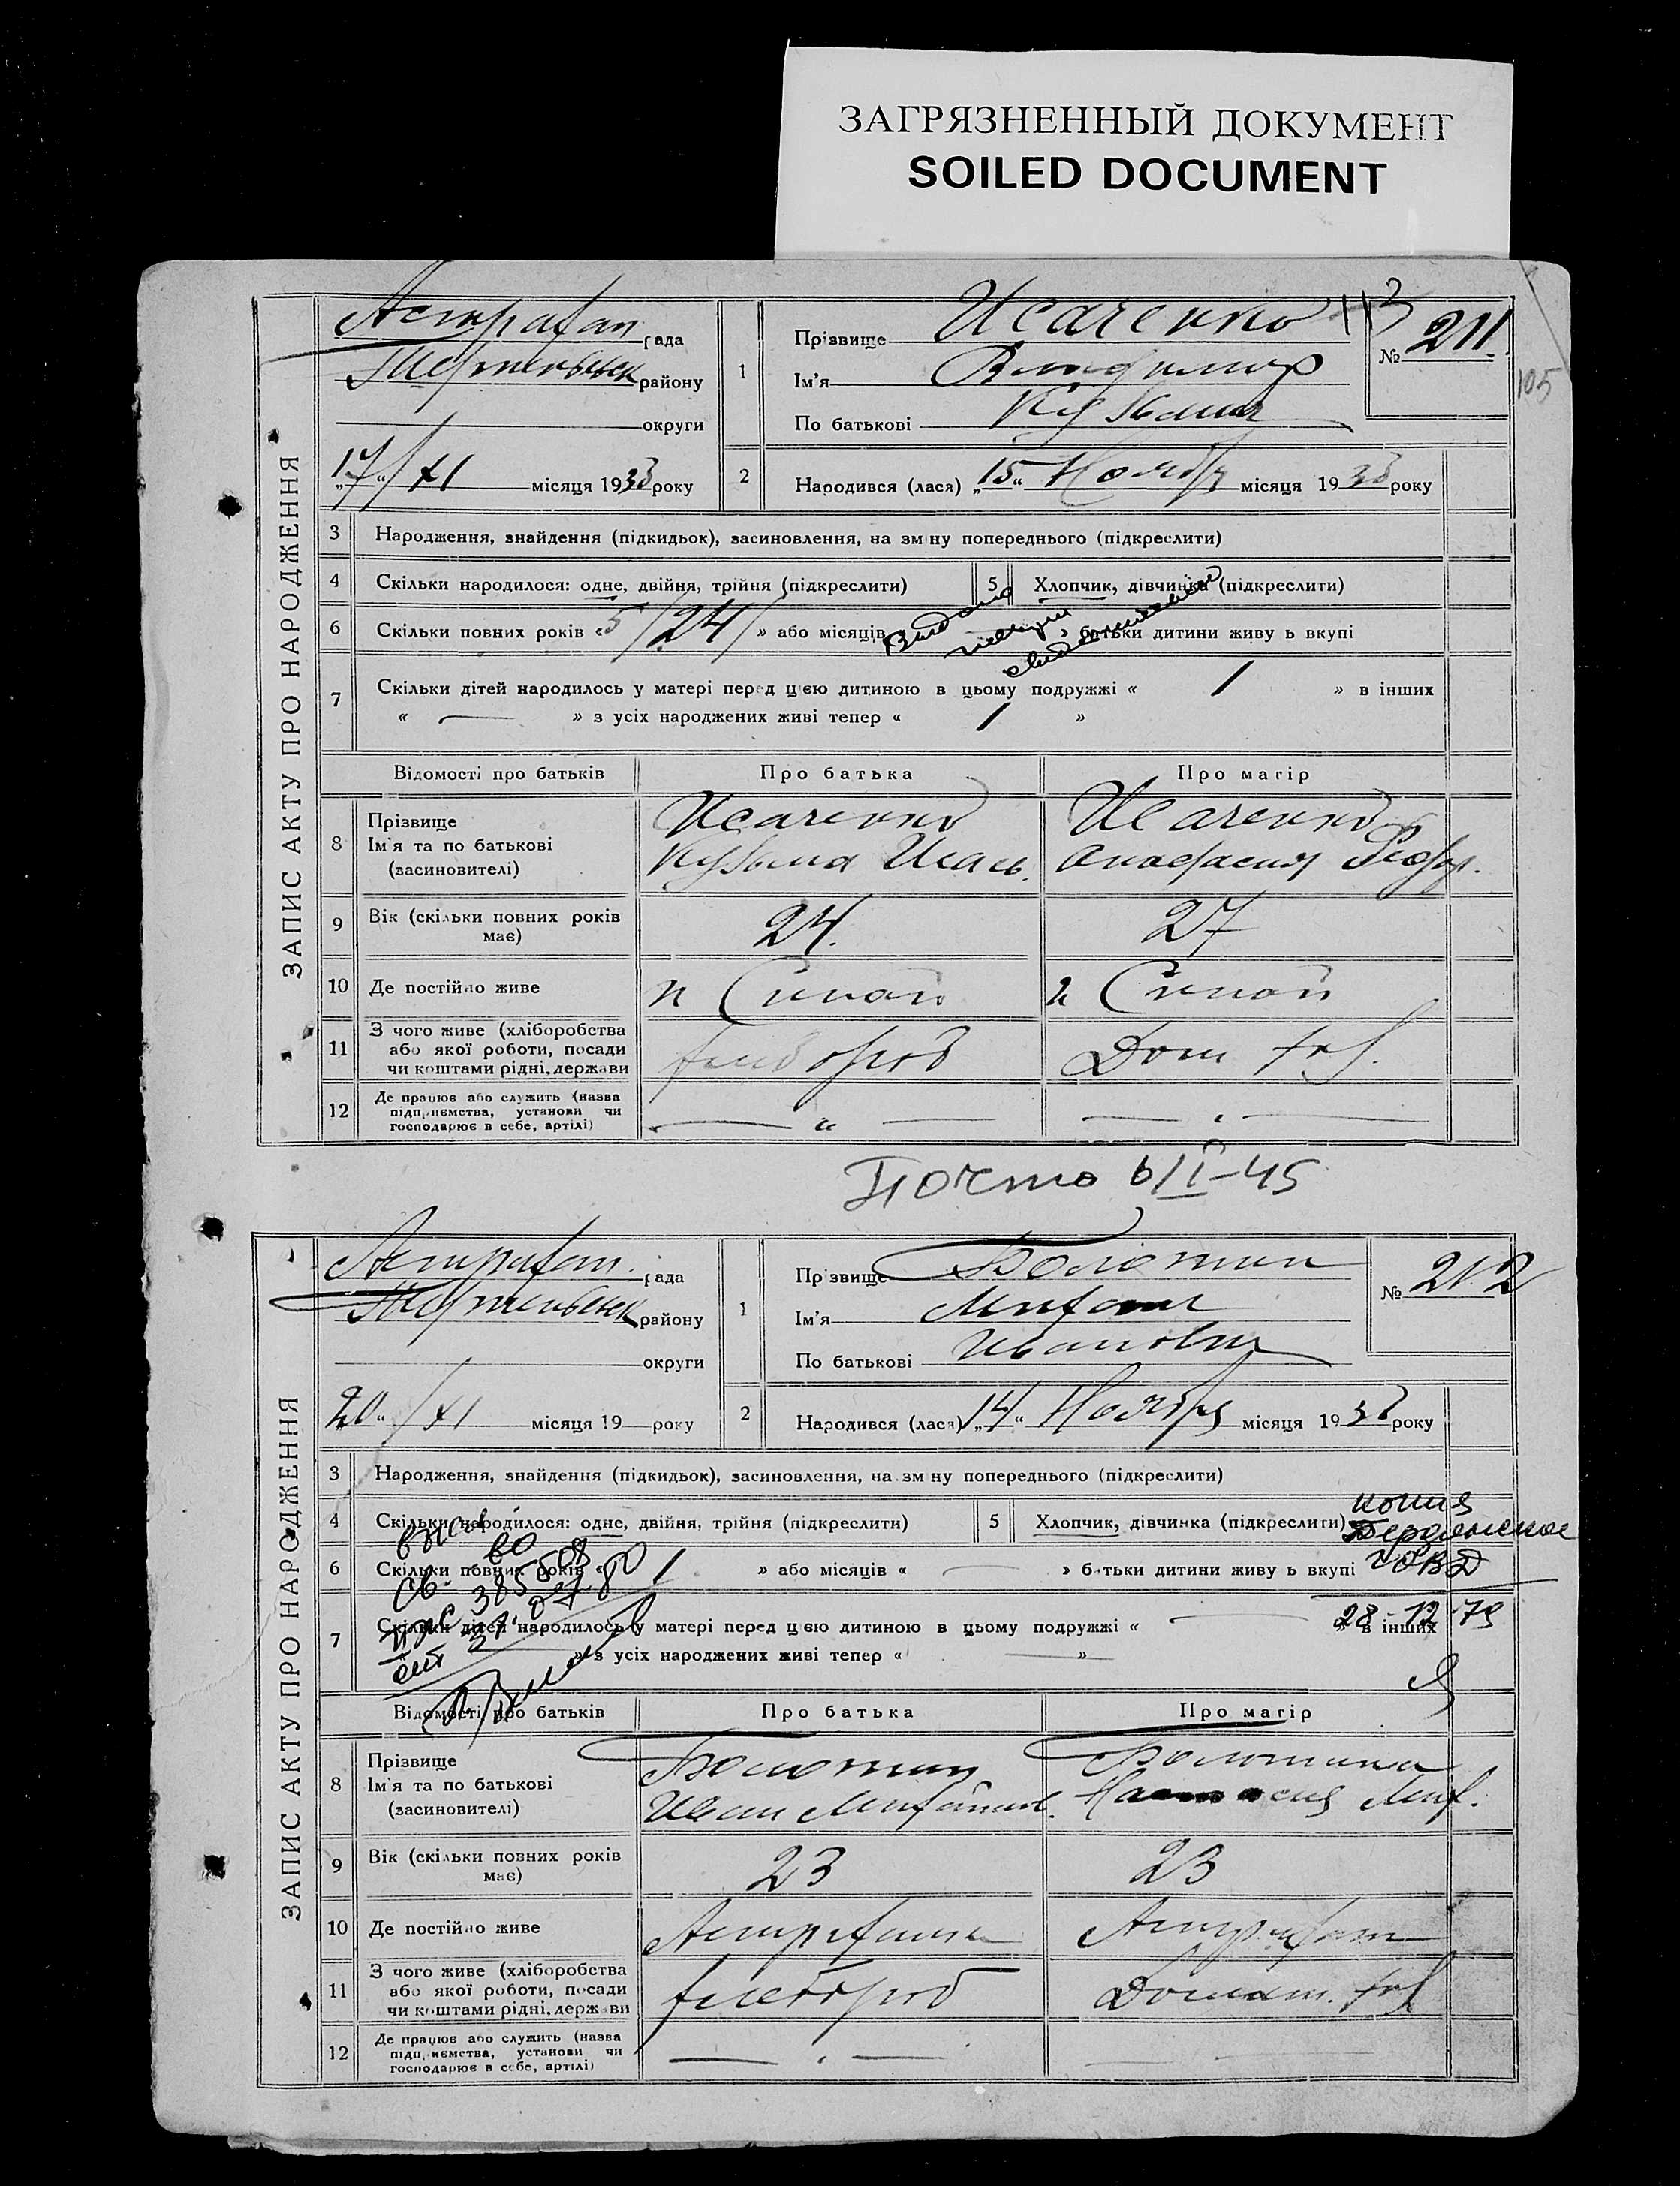 ЗАГРЯЗНЕННЫЙ ДОКУМЕНТ
SOILED DOCUMENT
105
ЗАПИС АКТУ ПРО НАРОДЖЕННЯ
Астрахан рада
району
округи
„17“ XI місяця 1933 року
1
Прізвище Исаченко
Ім'я Владимир
По батькові
№ 211
2
Народився (лася) „15“ Ноября місяця 1933 року
3 Народження, знайдення (підкидьок), засиновлення, на зміну попереднього (підкреслити)
4 Скільки народилося: одне, двійня, трійня (підкреслити)
5 Хлопчик, дівчинка (підкреслити)
6 Скільки повних років «5/24/ » або місяців « — » батьки дитини живуть вкупі
7 Скільки дітей народилось у матері перед цією дитиною в цьому подружжі « 1 » в інших
« — » з усіх народжених живі тепер « 1 »
Відомості про батьків Про батька Про матір
8 Прізвище Ім'я та по батькові (засиновителі)
Исаченко Исаченко
Кузьма Исаев. Анафасия Федор.
9 Вік (скільки повних років має) 24. 27
10 Де постійно живе
11 З чого живе (хліборобства або якої роботи, посади чи коштами рідні, держави хлебороб Дом. хоз.
12 Де працює або служить (назва підприємства, установи чи господарює в себе, артілі) — „ — — „ —
6/II-45
ЗАПИС АКТУ ПРО НАРОДЖЕННЯ
Астрахан. рада
району
округи
„20“ XI місяця 19 — року
1
Прізвище Болотин
Ім'я Михаил
По батькові Иванович
№ 212
2
Народився (лася) „14“ Ноября місяця 1933 року
3 Народження, знайдення (підкидьок), засиновлення, на зміну попереднього (підкреслити)
4 Скільки народилося: одне, двійня, трійня (підкреслити)
5 Хлопчик, дівчинка (підкреслити)
копия
Бердянское
ГОВД
28-12-79
6 Скільки повних років « 1 » або місяців « — » батьки дитини живуть вкупі
7 Скільки дітей народилось у матері перед цією дитиною в цьому подружжі « — » в інших
» з усіх народжених живі тепер « — »
Відомості про батьків Про батька Про матір
8 Прізвище Ім'я та по батькові (засиновителі)
Болотин Болотина
Иван Михайлов. Настасия Мих.
9 Вік (скільки повних років має) 23 23
10 Де постійно живе Астраханка Астрахан
11 З чого живе (хліборобства або якої роботи, посади чи коштами рідні, держави хлебороб Домаш. хоз
12 Де працює або служить (назва підприємства, установи чи господарює в себе, артілі) — „ —